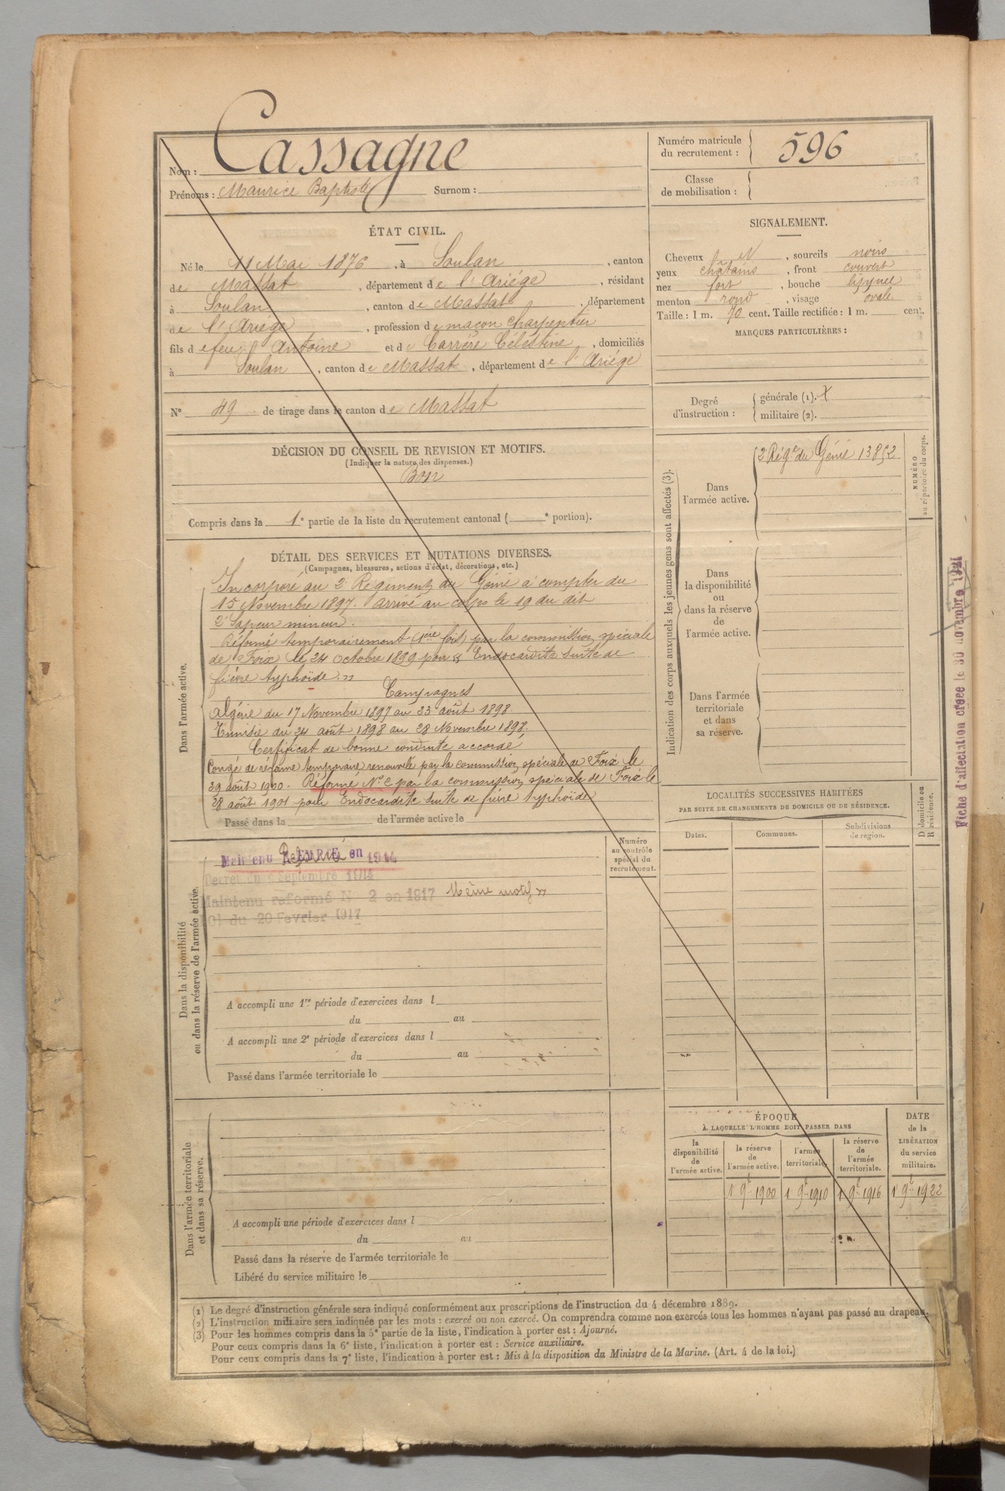 Nom : Cassagne
Prénoms : Maurice Baptiste Surnom :
Numéro matricule du recrutement : 596
Classe de mobilisation :
ÉTAT CIVIL.
Né le 11 Mai 1876, à Soulan, canton
de Massat, département de l'Ariège, résidant
à Soulan, canton de Massat, département
de l'Ariège, profession de maçon charpentier
fils de feu Antoine et de Carrère Célestine, domiciliés
à Soulan, canton de Massat, département de l'Ariège
N° 49 de tirage dans le canton de Massat
SIGNALEMENT.
Cheveux , sourcils noirs
yeux châtains, front couvert
nez fort, bouche moyenne
menton rond, visage ovale
Taille : 1 m. 70 cent. Taille rectifiée : 1 m. cent.
MARQUES PARTICULIÈRES :
Degré d'instruction : générale (1).
militaire (2).
DÉCISION DU CONSEIL DE REVISION ET MOTIFS.
(Indiquer la nature des dispenses.)
Bon
Compris dans la 1e partie de la liste du recrutement cantonal ( e portion).
DÉTAIL DES SERVICES ET MUTATIONS DIVERSES.
(Campagnes, blessures, actions d'éclat, décorations, etc.)
Dans l'armée active.
Incorporé au 2e Régiment du Génie à compter du
15 Novembre 1897. Arrivé au corps le 19 du dit
2e Sapeur mineur.
Réformé temporairement (1ère fois) par la commission spéciale
de Foix le 24 Octobre 1899 pour "Endocardite suite de
fièvre typhoïde."
Campagnes
Algérie du 17 Novembre 1897 au 23 août 1898
Tunisie du 24 août 1898 au 28 Novembre 1898.
Certificat de bonne conduite accordé
Congé de réforme temporaire renouvelé par la commission spéciale de Foix le
29 août 1900. Réformé N° 2 par la commission spéciale de Foix le
28 août 1901 pour Endocardite suite de fièvre typhoïde
Passé dans la de l'armée active le
Indication des corps auxquels les jeunes gens sont affectés (3).
Dans l'armée active.
2 Régt du Génie 13852
NUMÉRO au répertoire du corps.
Dans la disponibilité ou dans la réserve de l'armée active.
Dans l'armée territoriale et dans sa réserve.
LOCALITÉS SUCCESSIVES HABITÉES
PAR SUITE DE CHANGEMENTS DE DOMICILE OU DE RÉSIDENCE.
Dates. Communes. Subdivisions de region. D domicile ou R résidence.
Fiche d'affectation créée le 30 novembre 1921
Dans la disponibilité ou dans la réserve de l'armée active.
Numéro au contrôle spécial du recrutement.
Maintenu Réformé en 1914
Décret du 9 Septembre 1914
Maintenu réformé N° 2 en 1917 Même motif
Loi du 20 Fevrier 1917
A accompli une 1re période d'exercices dans l
du au
A accompli une 2e période d'exercices dans l
du au
Passé dans l'armée territoriale le
Dans l'armée territoriale et dans sa réserve.
A accompli une période d'exercices dans l
du au
Passé dans la réserve de l'armée territoriale le
Libéré du service militaire le
ÉPOQUE
À LAQUELLE L'HOMME DOIT PASSER DANS
la disponibilité de l'armée active. la réserve de l'armée active. l'armée territoriale. la réserve de l'armée territoriale.
DATE de la LIBÉRATION du service militaire.
1 9bre 1900 1 9bre 1910 1 9bre 1916 1 9bre 1922
(1) Le degré d'instruction générale sera indiqué conformément aux prescriptions de l'instruction du 4 décembre 1889.
(2) L'instruction militaire sera indiquée par les mots : exercé ou non exercé. On comprendra comme non exercés tous les hommes n'ayant pas passé au drapeau.
(3) Pour les hommes compris dans la 5e partie de la liste, l'indication à porter est : Ajourné.
Pour ceux compris dans la 6e liste, l'indication à porter est : Service auxiliaire.
Pour ceux compris dans la 7e liste, l'indication à porter est : Mis à la disposition du Ministre de la Marine. (Art. 4 de la loi.)